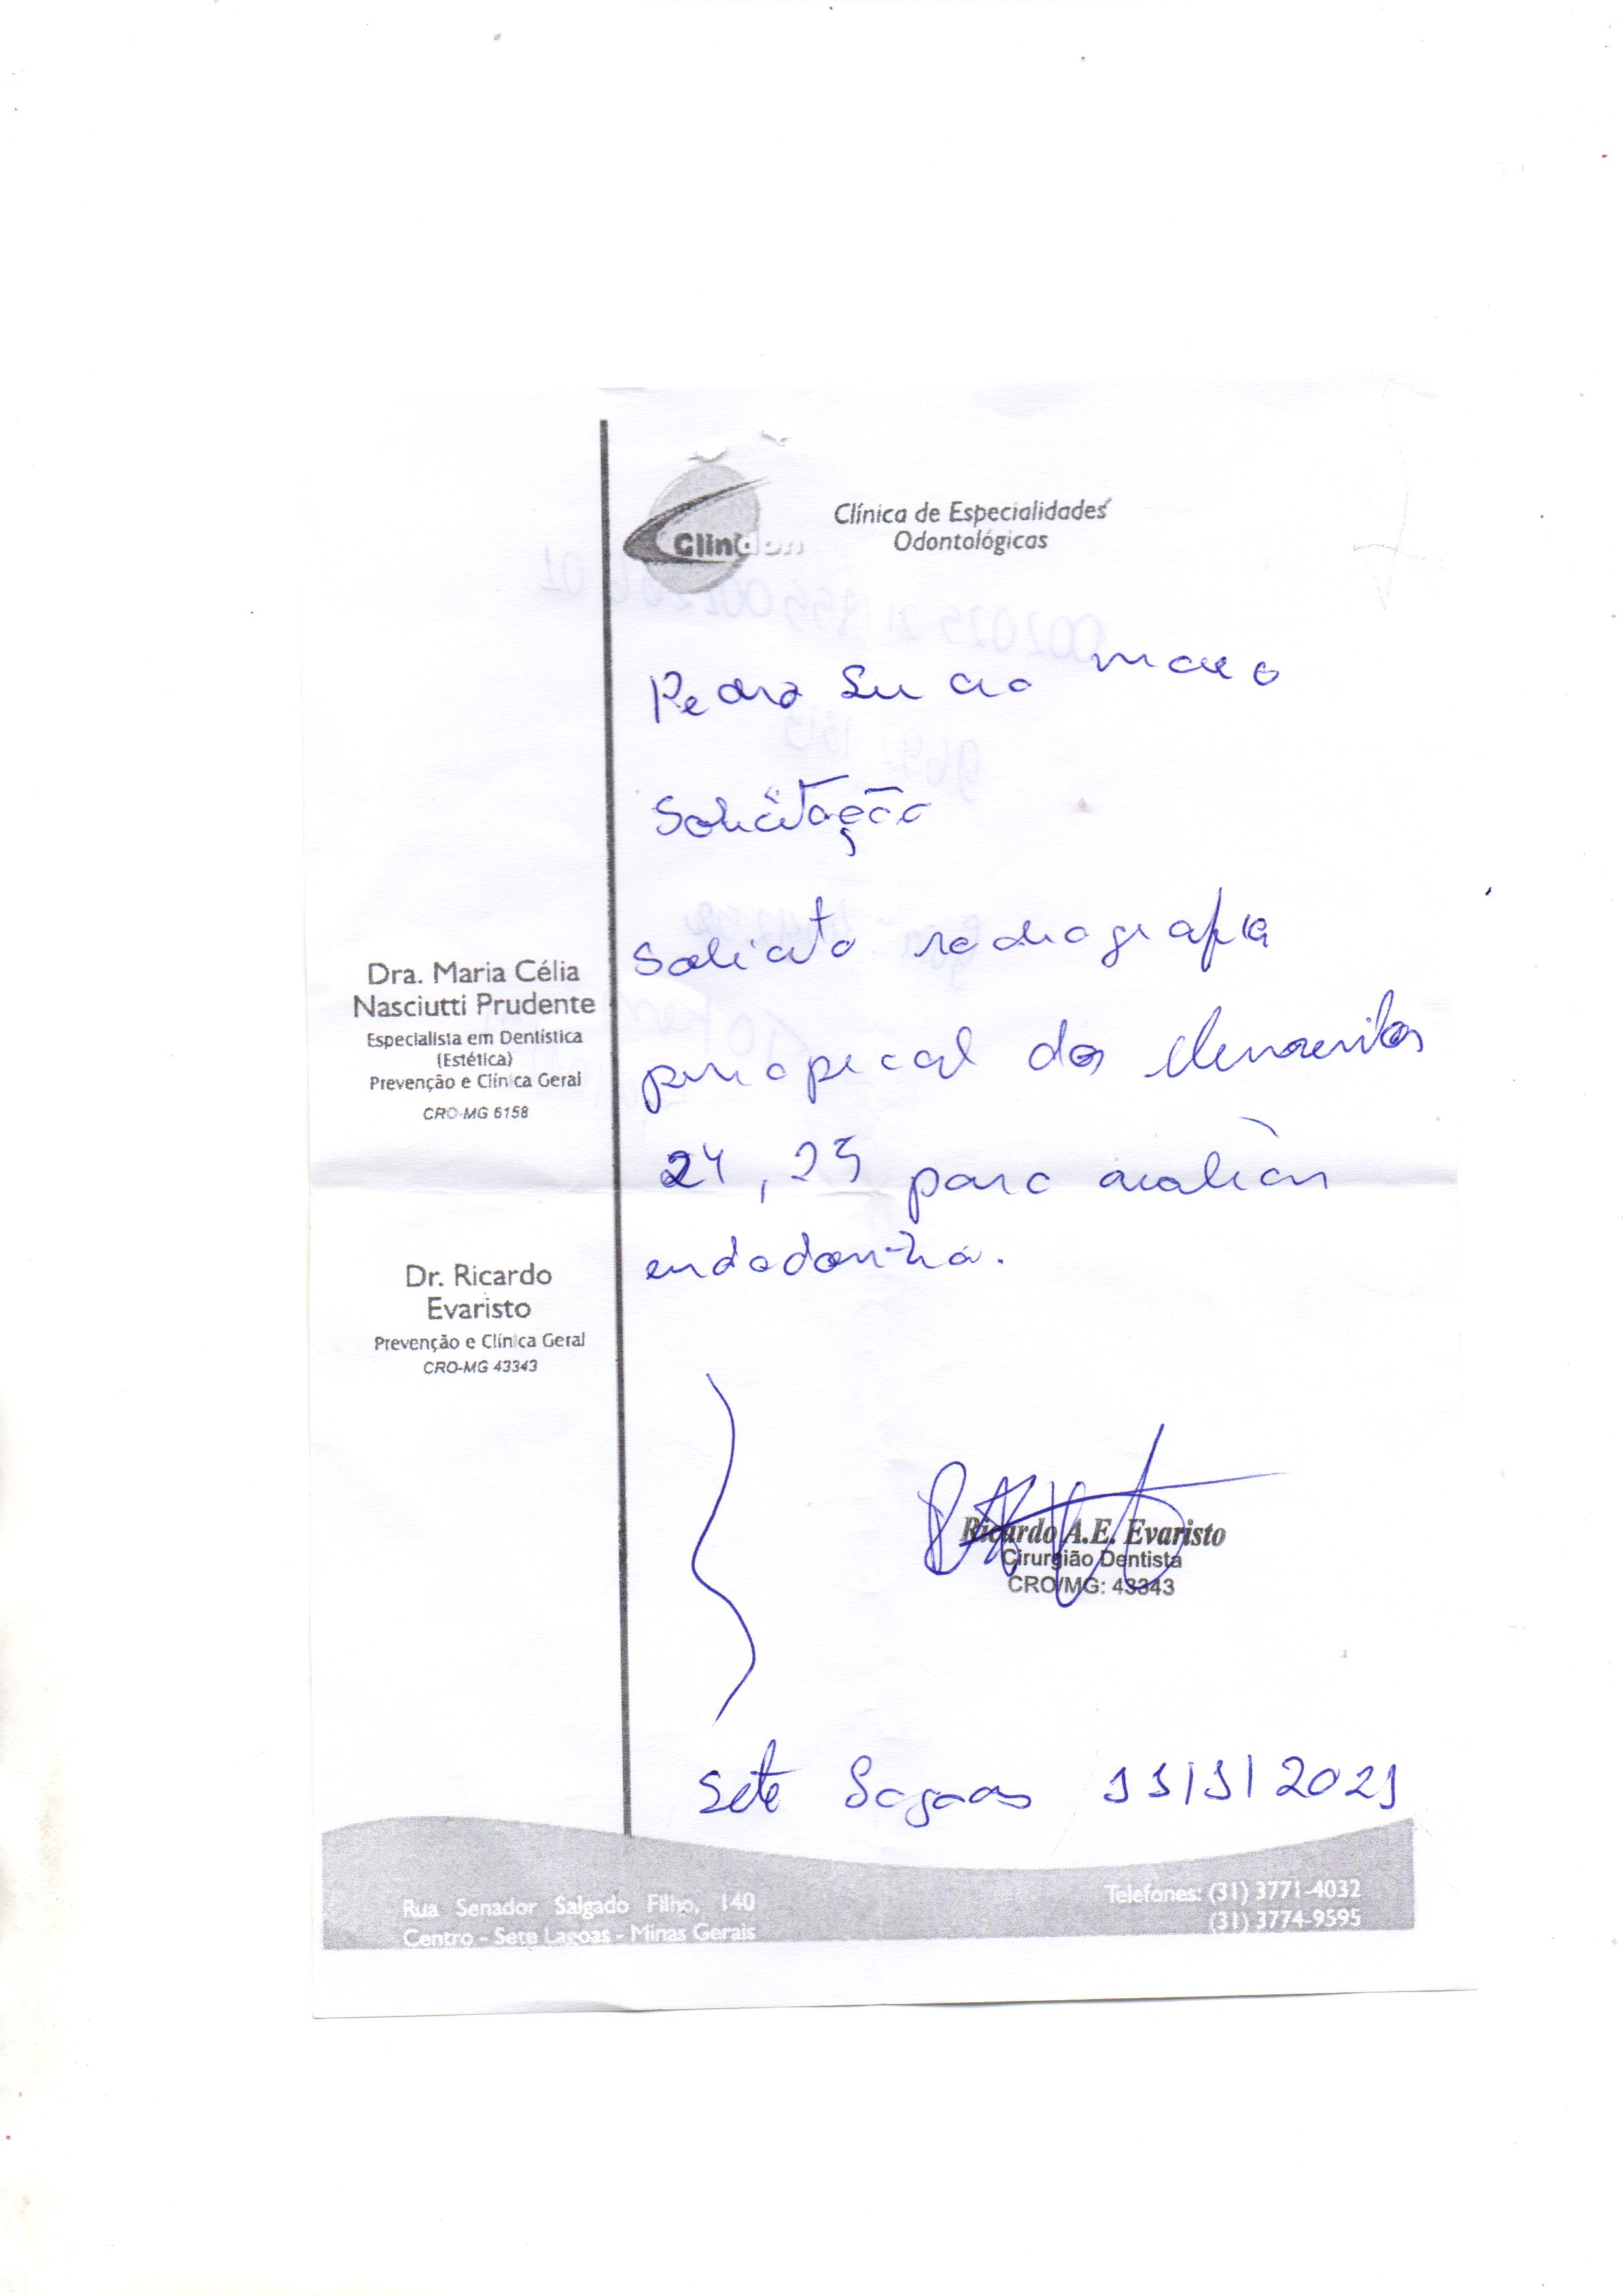 Clinidon
Clínica de Especialidades
Odontológicas
Pedro Lucio
Solicitação
Solicito radiografia
periapical dos elementos
24, 25 para avaliar
endodontia.
Dra. Maria Célia
Nasciutti Prudente
Especialista em Dentística
(Estética)
Prevenção e Clínica Geral
CRO-MG 6158
Dr. Ricardo
Evaristo
Prevenção e Clínica Geral
CRO-MG 43343
Ricardo A.E. Evaristo
Cirurgião Dentista
CRO/MG: 43343
Sete Lagoas 11/1/2021
Rua Senador Salgado Filho, 140
Centro - Sete Lagoas - Minas Gerais
Telefones: (31) 3771-4032
(31) 3774-9595